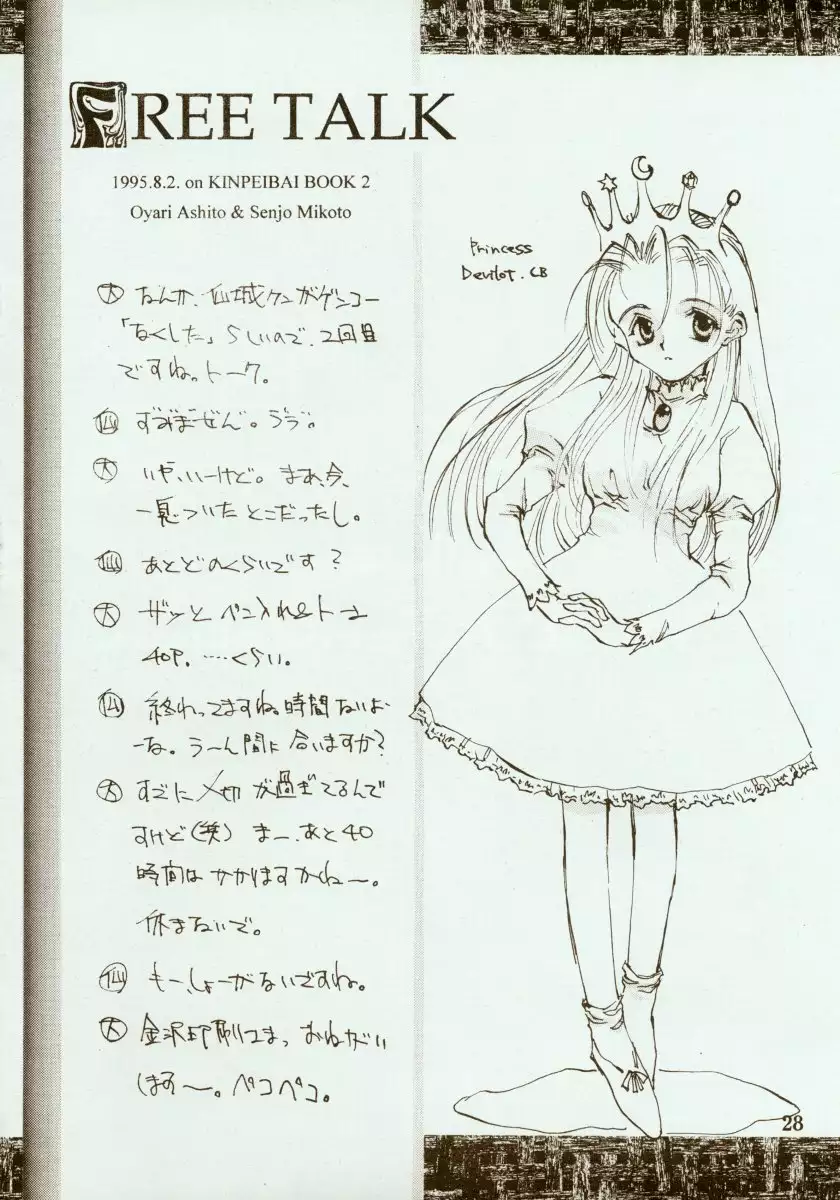 FREE TALK
1995.8.2. on KINPEIBAI BOOK 2
Oyari Ashito & Senjo Mikoto
Princess
Devilot. CB
大 なんか、仙城クンがゲンコー
「なくした」らしいので、2回目
ですね。トーク。
仙 ずみまぜん。
大 いや、いーけど。まあ、今、
一息ついたとこだったし。
仙 あとどのくらいです？
大 ザッと ペン入れ&トーン
40P. ……くらい。
仙 終わってますね。時間ないよ
ーな。うーん間に合いますか？
大 すでに〆切が過ぎてるんで
すけど（笑）まー、あと40
時間はかかりますかね〜。
休まないで。
仙 もー、しょーがないですね。
大 金沢印刷さま。おねがい
します〜。ペコペコ。
28